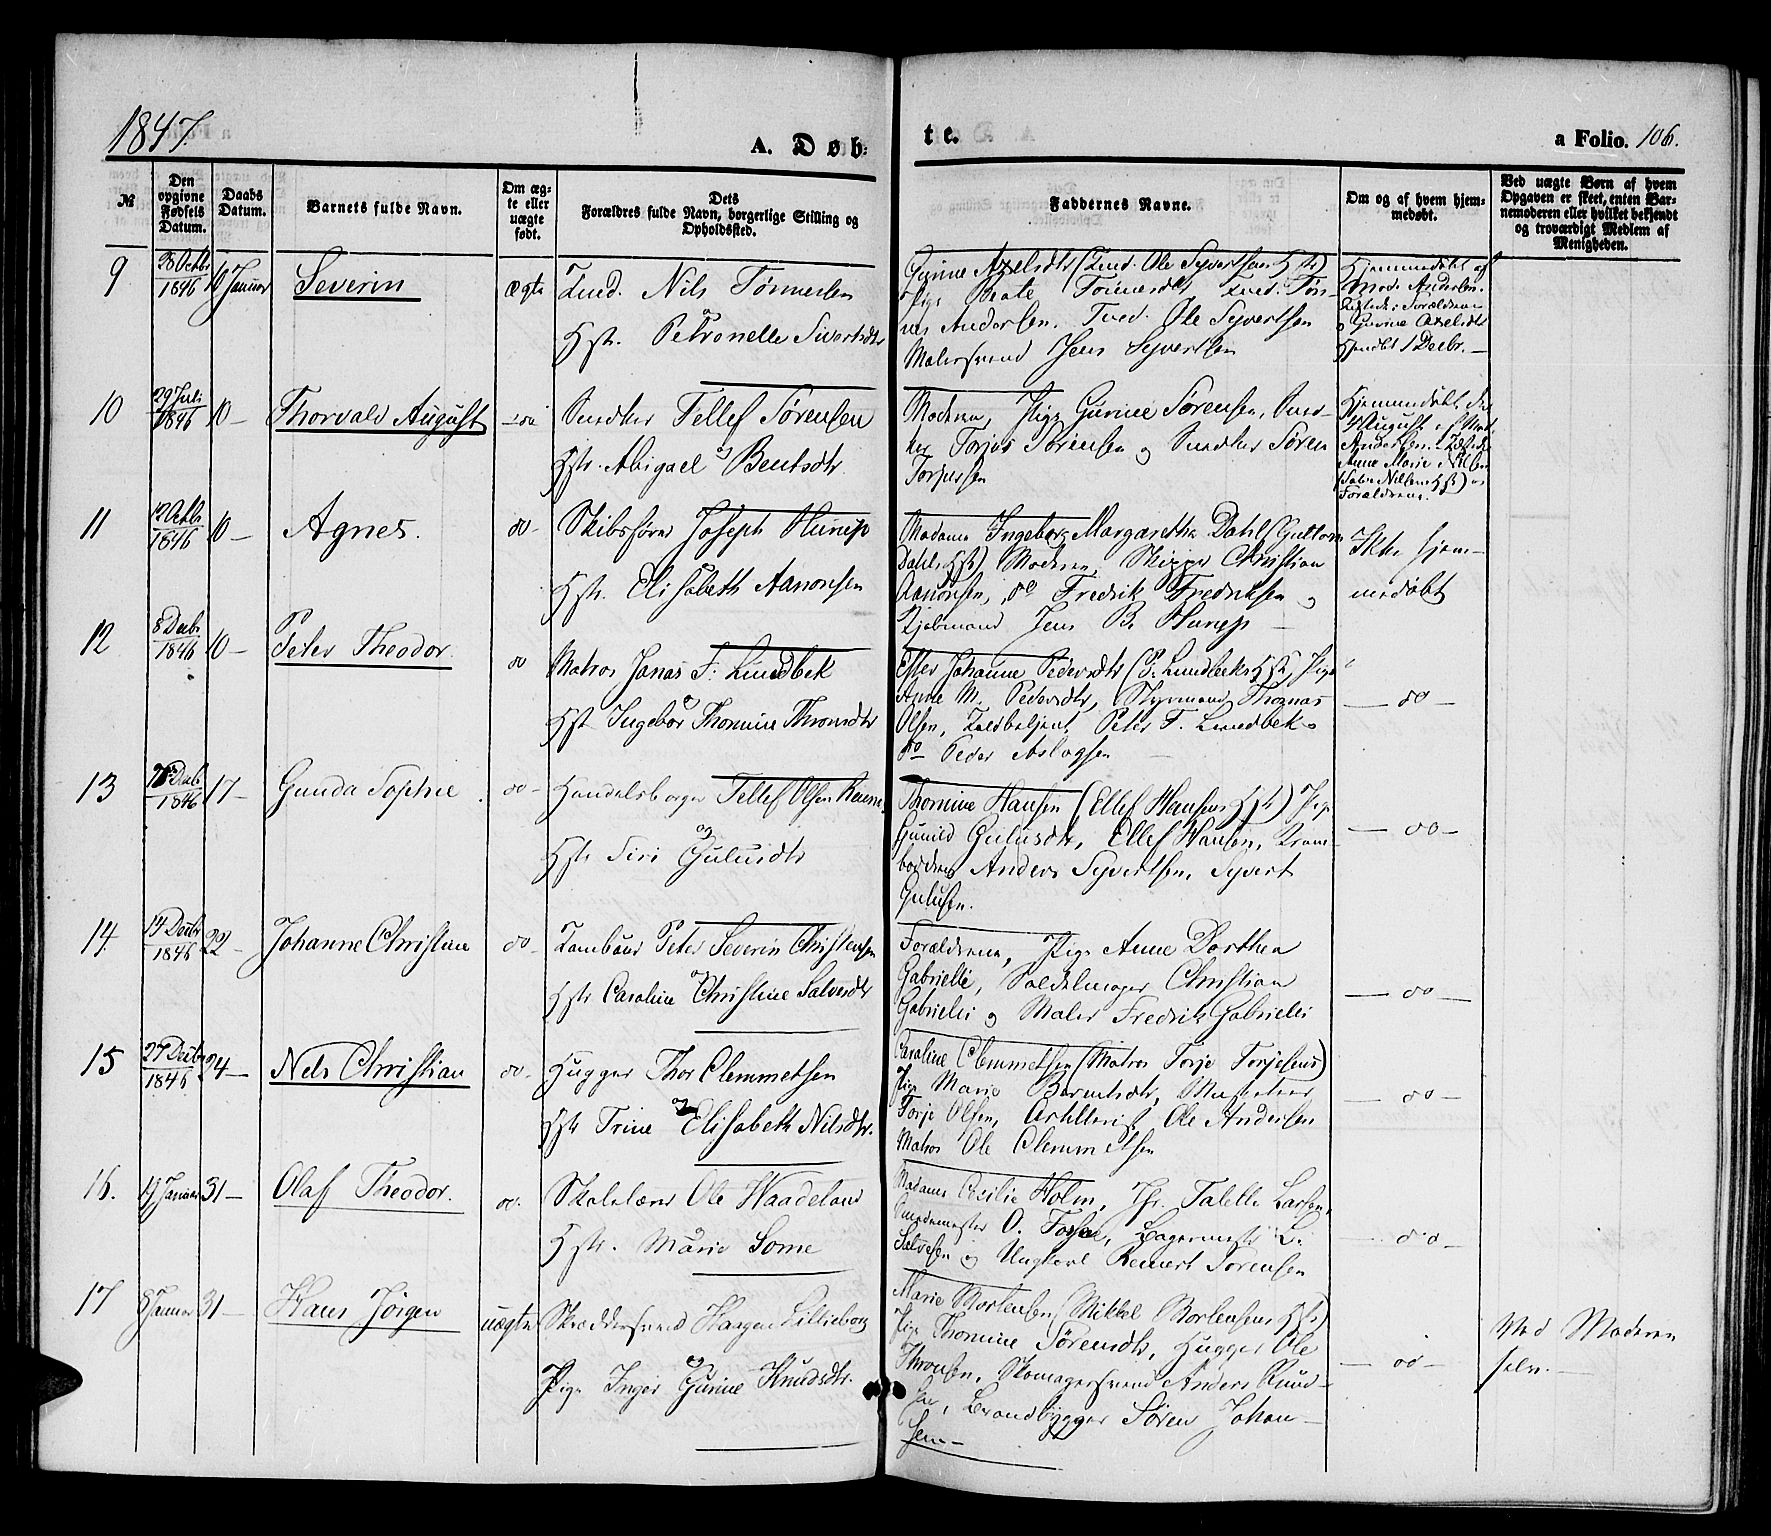 1847.
A. Døb-
te.
a Folio. 106.
№
Den opgivne Fødsels Datum.
Daabs Datum.
Barnets fulde Navn.
Om ægte eller uægte født.
Dets Forældres fulde Navn, borgerlige Stilling og Opholdssted.
Faddernes Navne.
Om og af hvem hjemmedøbt.
Ved uægte Børn af hvem Opgaven er skeet, enten Barnemoderen eller hvilket bekjendt og troværdigt Medlem af Menigheden.
9
28 Octbr 1846
10 Januar
Severin
ægte
Nils Tønnesen
og
Hstr. Petronelle Sivertsdtr
Gurine Axelsdtr ( Ole Syvertsens Hst)
Pige Beate Tønnesdtr
Andersen. Ole Syvertsen
Malersvend Jens Syvertsen
Hjemmedøbt af
Mad. Andersen.
Forældrene
og Gurine Axelsdtr
Hjemdbt 1 Decbr.
10
29 Juli 1846
10 -
Thorvald August
Snedker Tellef Sørensen
og
Hstr. Abigael Bentsdtr.
Moderen, Pige Gurine Sørensen, Sned-
ker Torjus Sørensen og Snedker Søren
Torjussen
Hjemmedøbt den
August af Mad.
Andersen.
Anne Marie
Forældrene.
11
12 Octbr 1846
10 -
Agnes.
do -
Skibsfører Joseph Hurup
Hstr. Elisabeth Aanonsen
Madame Ingeborg Margarethe Dahl (Guttorm
Dahls Hst) Moderen, Skipper Christian
Aanonsen, do Fredrik Fredriksen og
Kjøbmand Jens B. Hurup
Ikke hjem-
medøbt
12
8 Decbr 1846
10 -
Peter Theodor.
do
Matros Jonas F. Lundbek
og
Hst Ingebor Thomine Thronsdtr
Ester Johanne Pedersdtr (P. Lundbeks Hst, Pige
Anne M. Pedersdtr, Styrmand Thomas
Olsen, Toldbetjent Peter F. Lundbek
do Peder Aslagsen
- do -
13
Decbr 1846
17 -
Gunda Sophie
do -
Handelsborger Tellef Olsen
og
Hstr Siri Gulusdtr
Thomine Hansen (Ellef Hansens Hst) Pige
Gunild Gulusdtr, Ellef Hansen,
Anders Syvertsen, Syvert
Gulusen.
- do -
14
14 Decbr 1846
22 -
Johanne Christine
do -
Tambour Peter Severin Christensen
og
Hstr Caroline Christine Salvesdtr
Forældrene, Pige Anne Dorthea
Gabrielli, Sadelmager Christian
Gabrielli og Maler Fredrik Gabrielli
- do -
15
27 Decbr 1846
24 -
Nels Christian
do -
Hugger Thor Clemmetsen
og
Hstr Trine Elisabeth Nilsdtr.
Caroline Clemmetsen (Matros Torje Torjesens)
Pige Marie Berntsdtr, Musketeer
Torje Olsen, Artillerist Ole Andersen
Matros Ole Clemmetsen
- do -
16.
19 Januar
31 -
Olaf Theodor.
do.
Skolelærer Ole Haadeland
Hstr. Marie Lome
Madame Cecilie Holm, Jfr. Talette Larsen,
Smedemester O. Fosse, Bagermestr L.
Salvesen og Ungkarl Reinert Sørensen
- do -
17
8 Januar
31 -
Hans Jørgen
uægte
Skræddersvend Haagen Lillieborg
og
Pige Inger Gurine Knudsdtr.
Marie Mortensen (Mikkel Mortensens Hst)
Pige Thomine Sørensdtr, Hugger Ole
Thronsen, Skomagersvend Anders Knud-
sen, Brandbygger Søren Johan-
sen -
- do -
Ved Moderen
selv. -